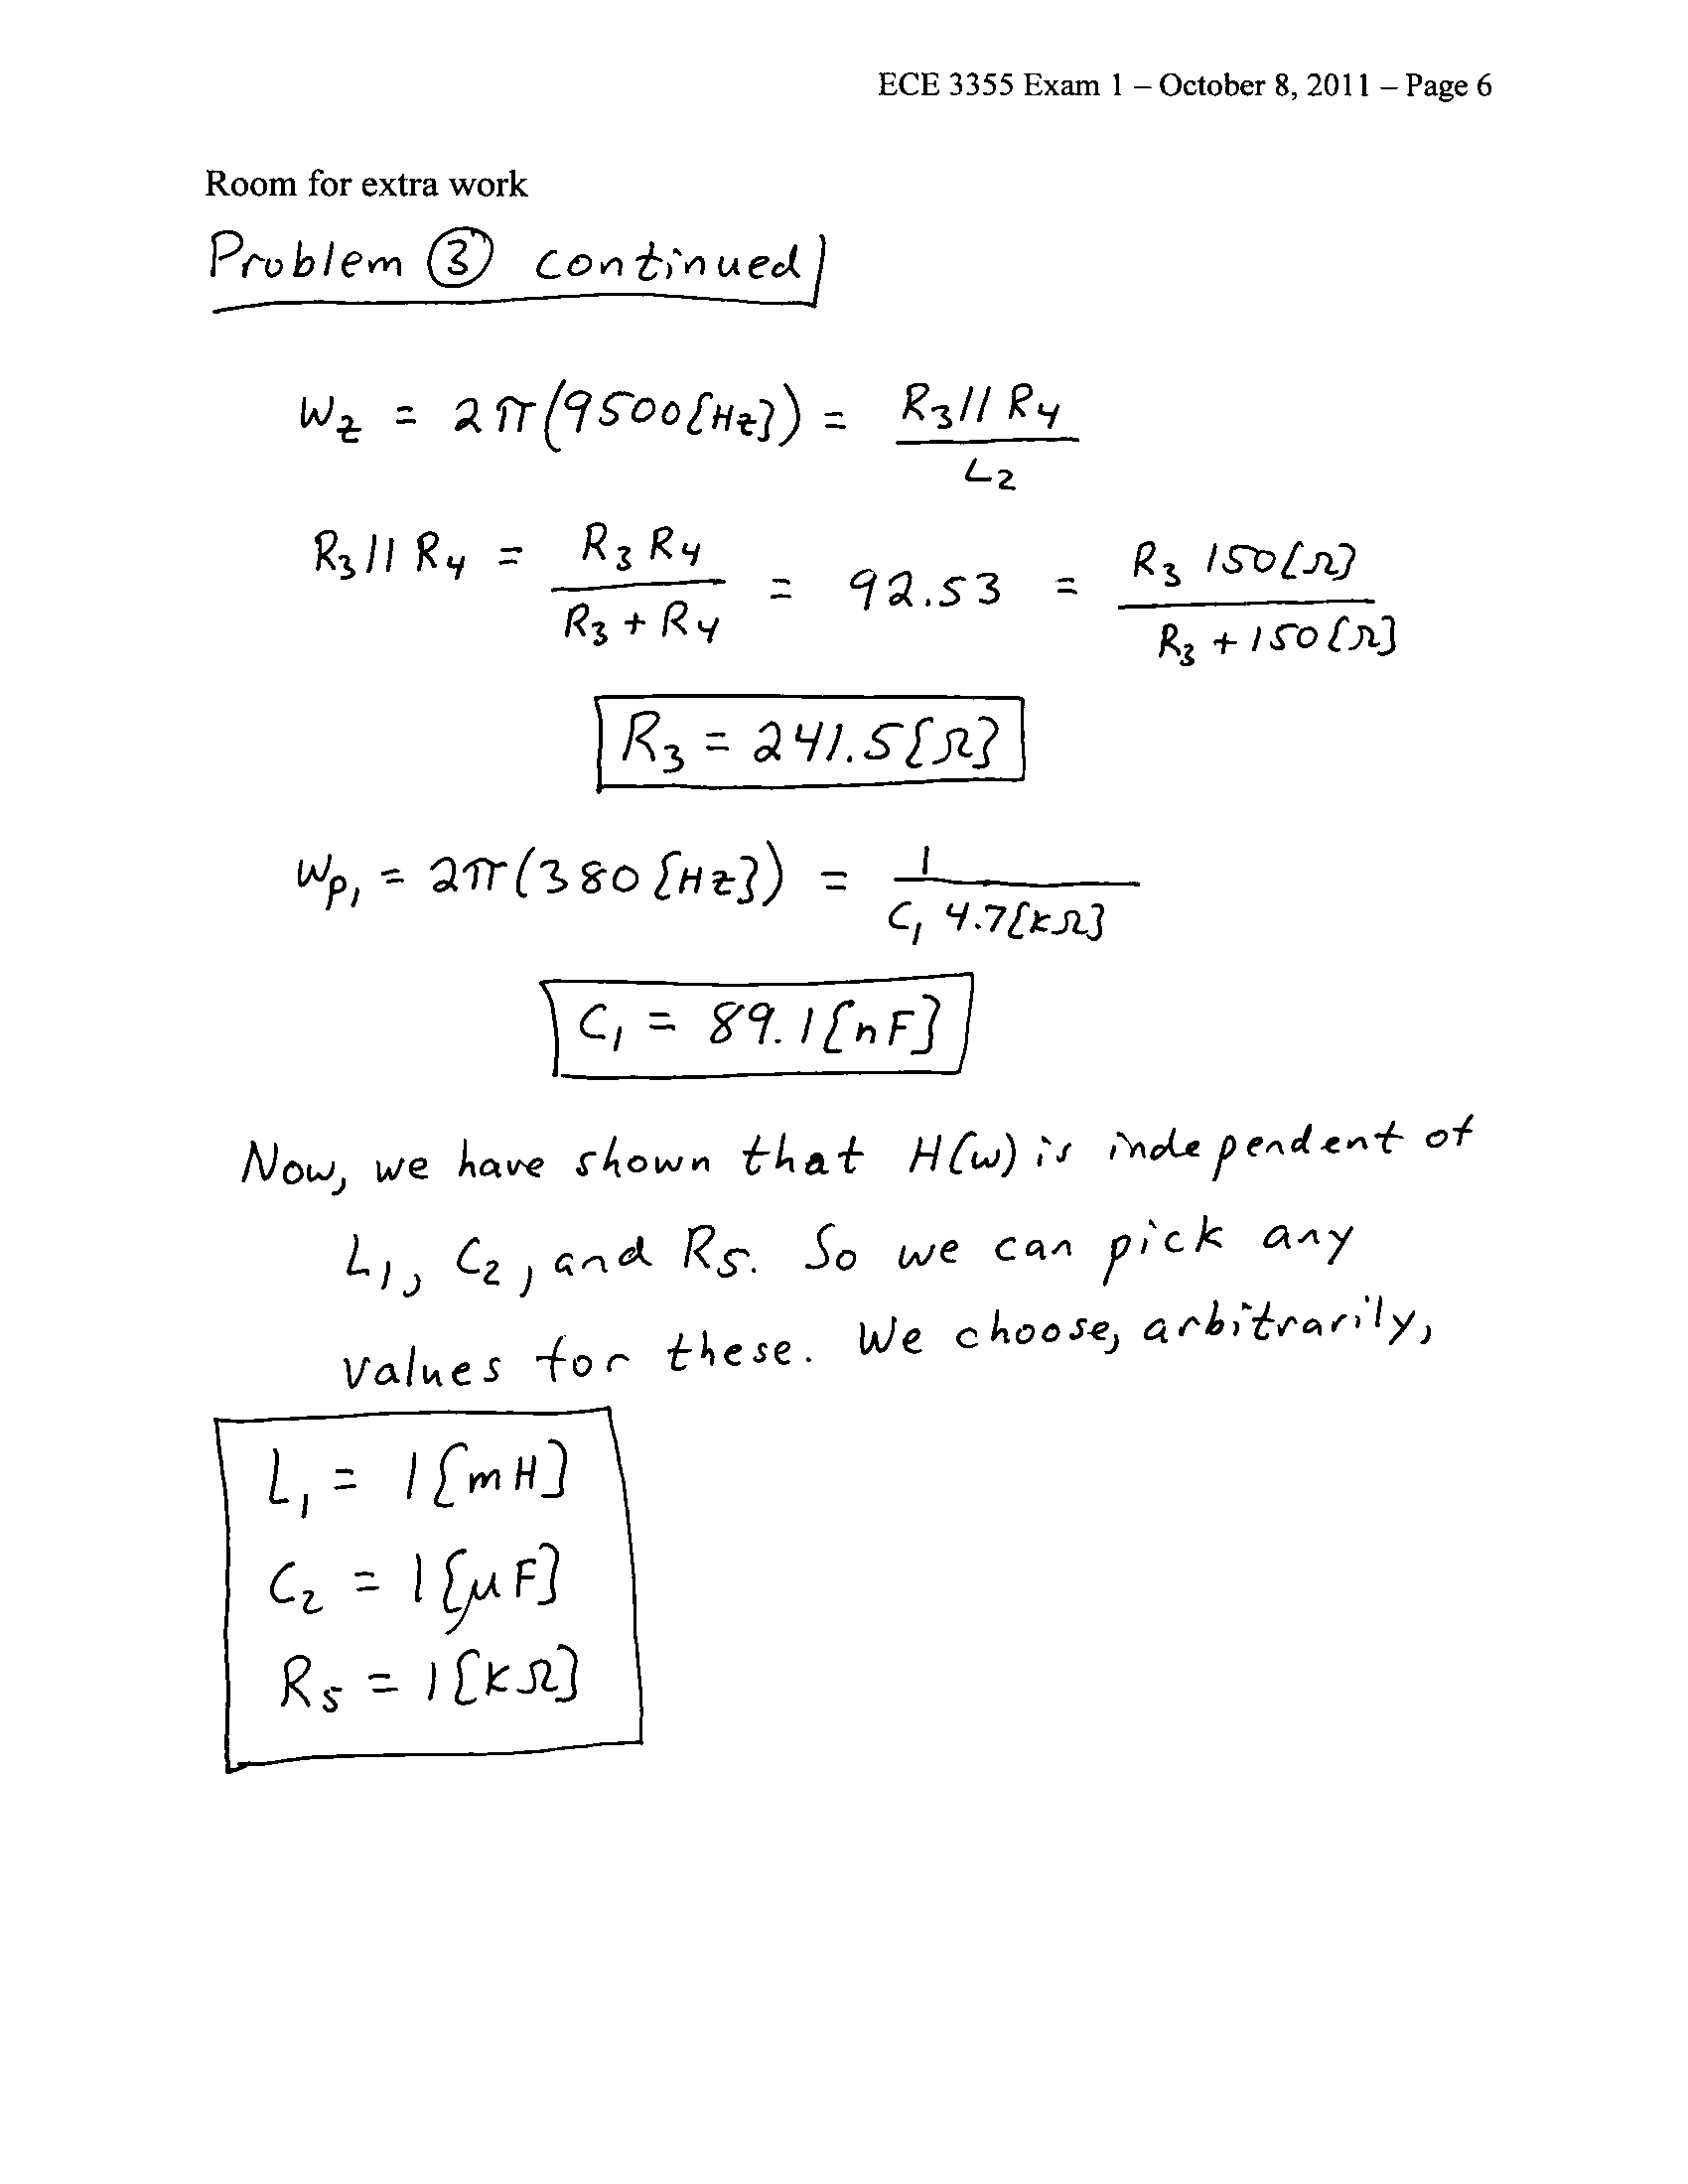 ECE 3355 Exam 1 – October 8, 2011 – Page 6
Room for extra work
Problem ③ continued
ω_z = 2π(9500{Hz}) = R3//R4 / L2
R3//R4 = R3 R4 / (R3 + R4) = 92.53 = R3 150{Ω} / (R3 + 150{Ω})
R3 = 241.5{Ω}
ω_p1 = 2π(380{Hz}) = 1 / (C1 4.7{kΩ})
C1 = 89.1{nF}
Now, we have shown that H(ω) is independent of
L1, C2, and R5. So we can pick any
values for these. We choose, arbitrarily,
L1 = 1{mH}
C2 = 1{μF}
R5 = 1{kΩ}